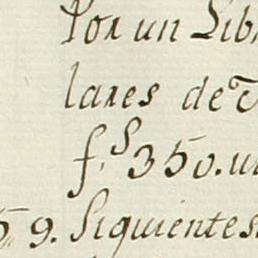 Por un Lib
lares de
f.s 350. u
59. Siquientes